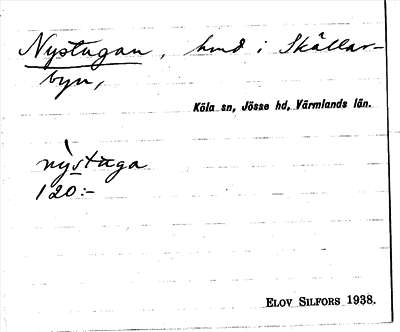 Nystugan, hmd i Skällar-
byn,
Köla sn, Jösse hd, Värmlands län.
nỳstùga
120:-
ELOV SILFORS 1938.